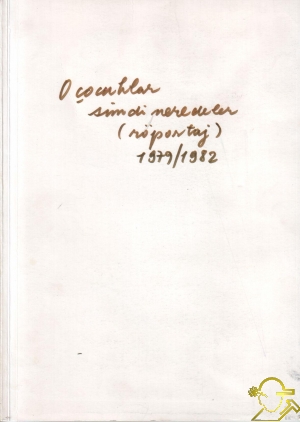 O çocuklar
şimdi neredeler
(röportaj)
1979/1982